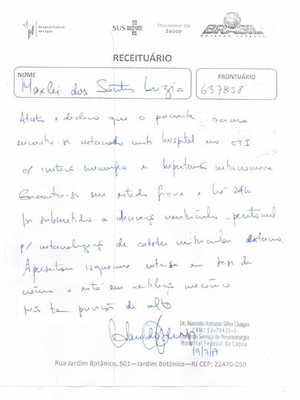 Hospital Federal
da Lagoa
SUS
Ministério da
Saúde
BRASIL
RECEITUÁRIO
NOME
PRONTUÁRIO
dos Santos Luzia
637838
Atesto e declaro que o paciente
encontra-se internado neste hospital no CTI
c/ e hipertensão intracraniana
Encontra-se em estado grave e há 24h
foi submetido a ventrículo-peritoneal
p/ de cateter ventricular externo
Apresentou isquemia extensa em
e está em ventilação mecânica
Não tem previsão de alta
Dr. Haroldo Antonio Silva Chagas
CRM: 52-70425-3
do Serviço de Neurocirurgia
Hospital Federal da Lagoa
19/7/17
Rua Jardim Botânico, 501—Jardim Botânico—RJ CEP: 22470-050